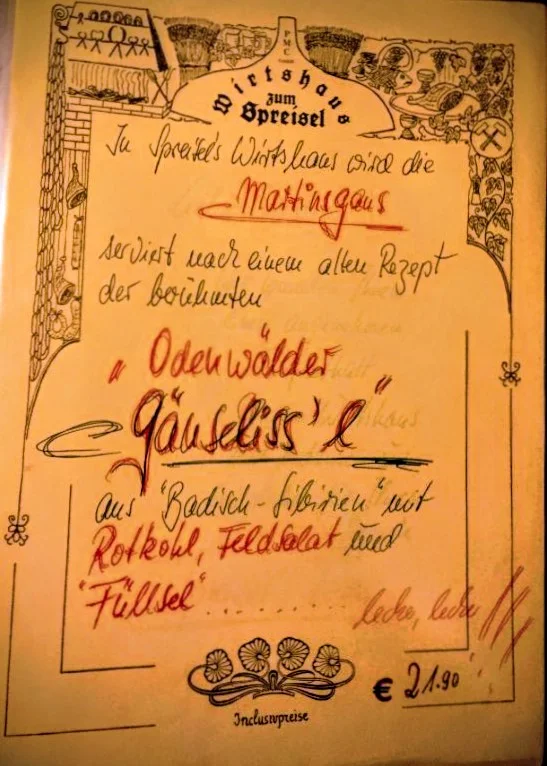 PMC
Wirtshaus
zum
Spreisel
In Spreisel's Wirtshaus wird die
Martinsgans
serviert nach einem alten Rezept
der berühmten
„Odenwälder
Gänseliss'l“
aus "Badisch-Sibirien" mit
Rotkohl, Feldsalat und
"Füllsel" ......... lecker, lecker !!!
€ 21.90
Inclusivpreise